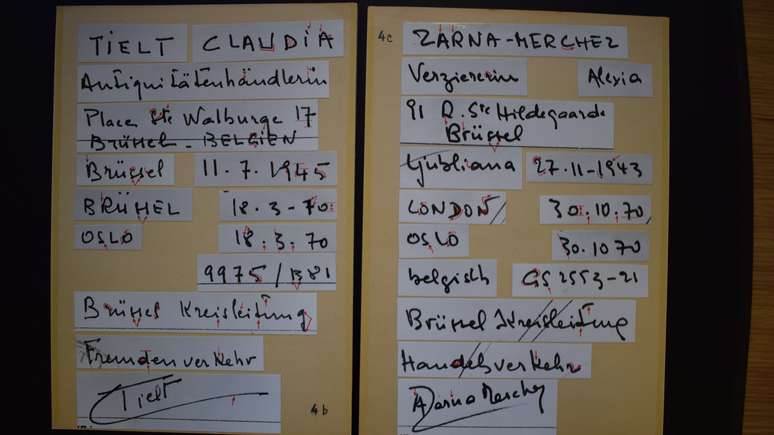 TIELT CLAUDIA
Antiquitätenhändlerin
Place Ste Walburge 17
BRÜHEL - BELGIEN
Brüssel 11.7.1945
BRÜHEL 18-3-70
OSLO 18.3.70
9975/B81
Brüssel Kreisleitung
Fremdenverkehr
Tielt
4b
4c
ZARNA-MERCHEZ
Verziererin Alexia
91 R. Ste Hildegaarde
Brüssel
Ljubliana 27-11-1943
LONDON 30.10.70
OSLO 30.10 70
belgisch GS 2553-21
Brüssel Kreisleitung
Handelsverkehr